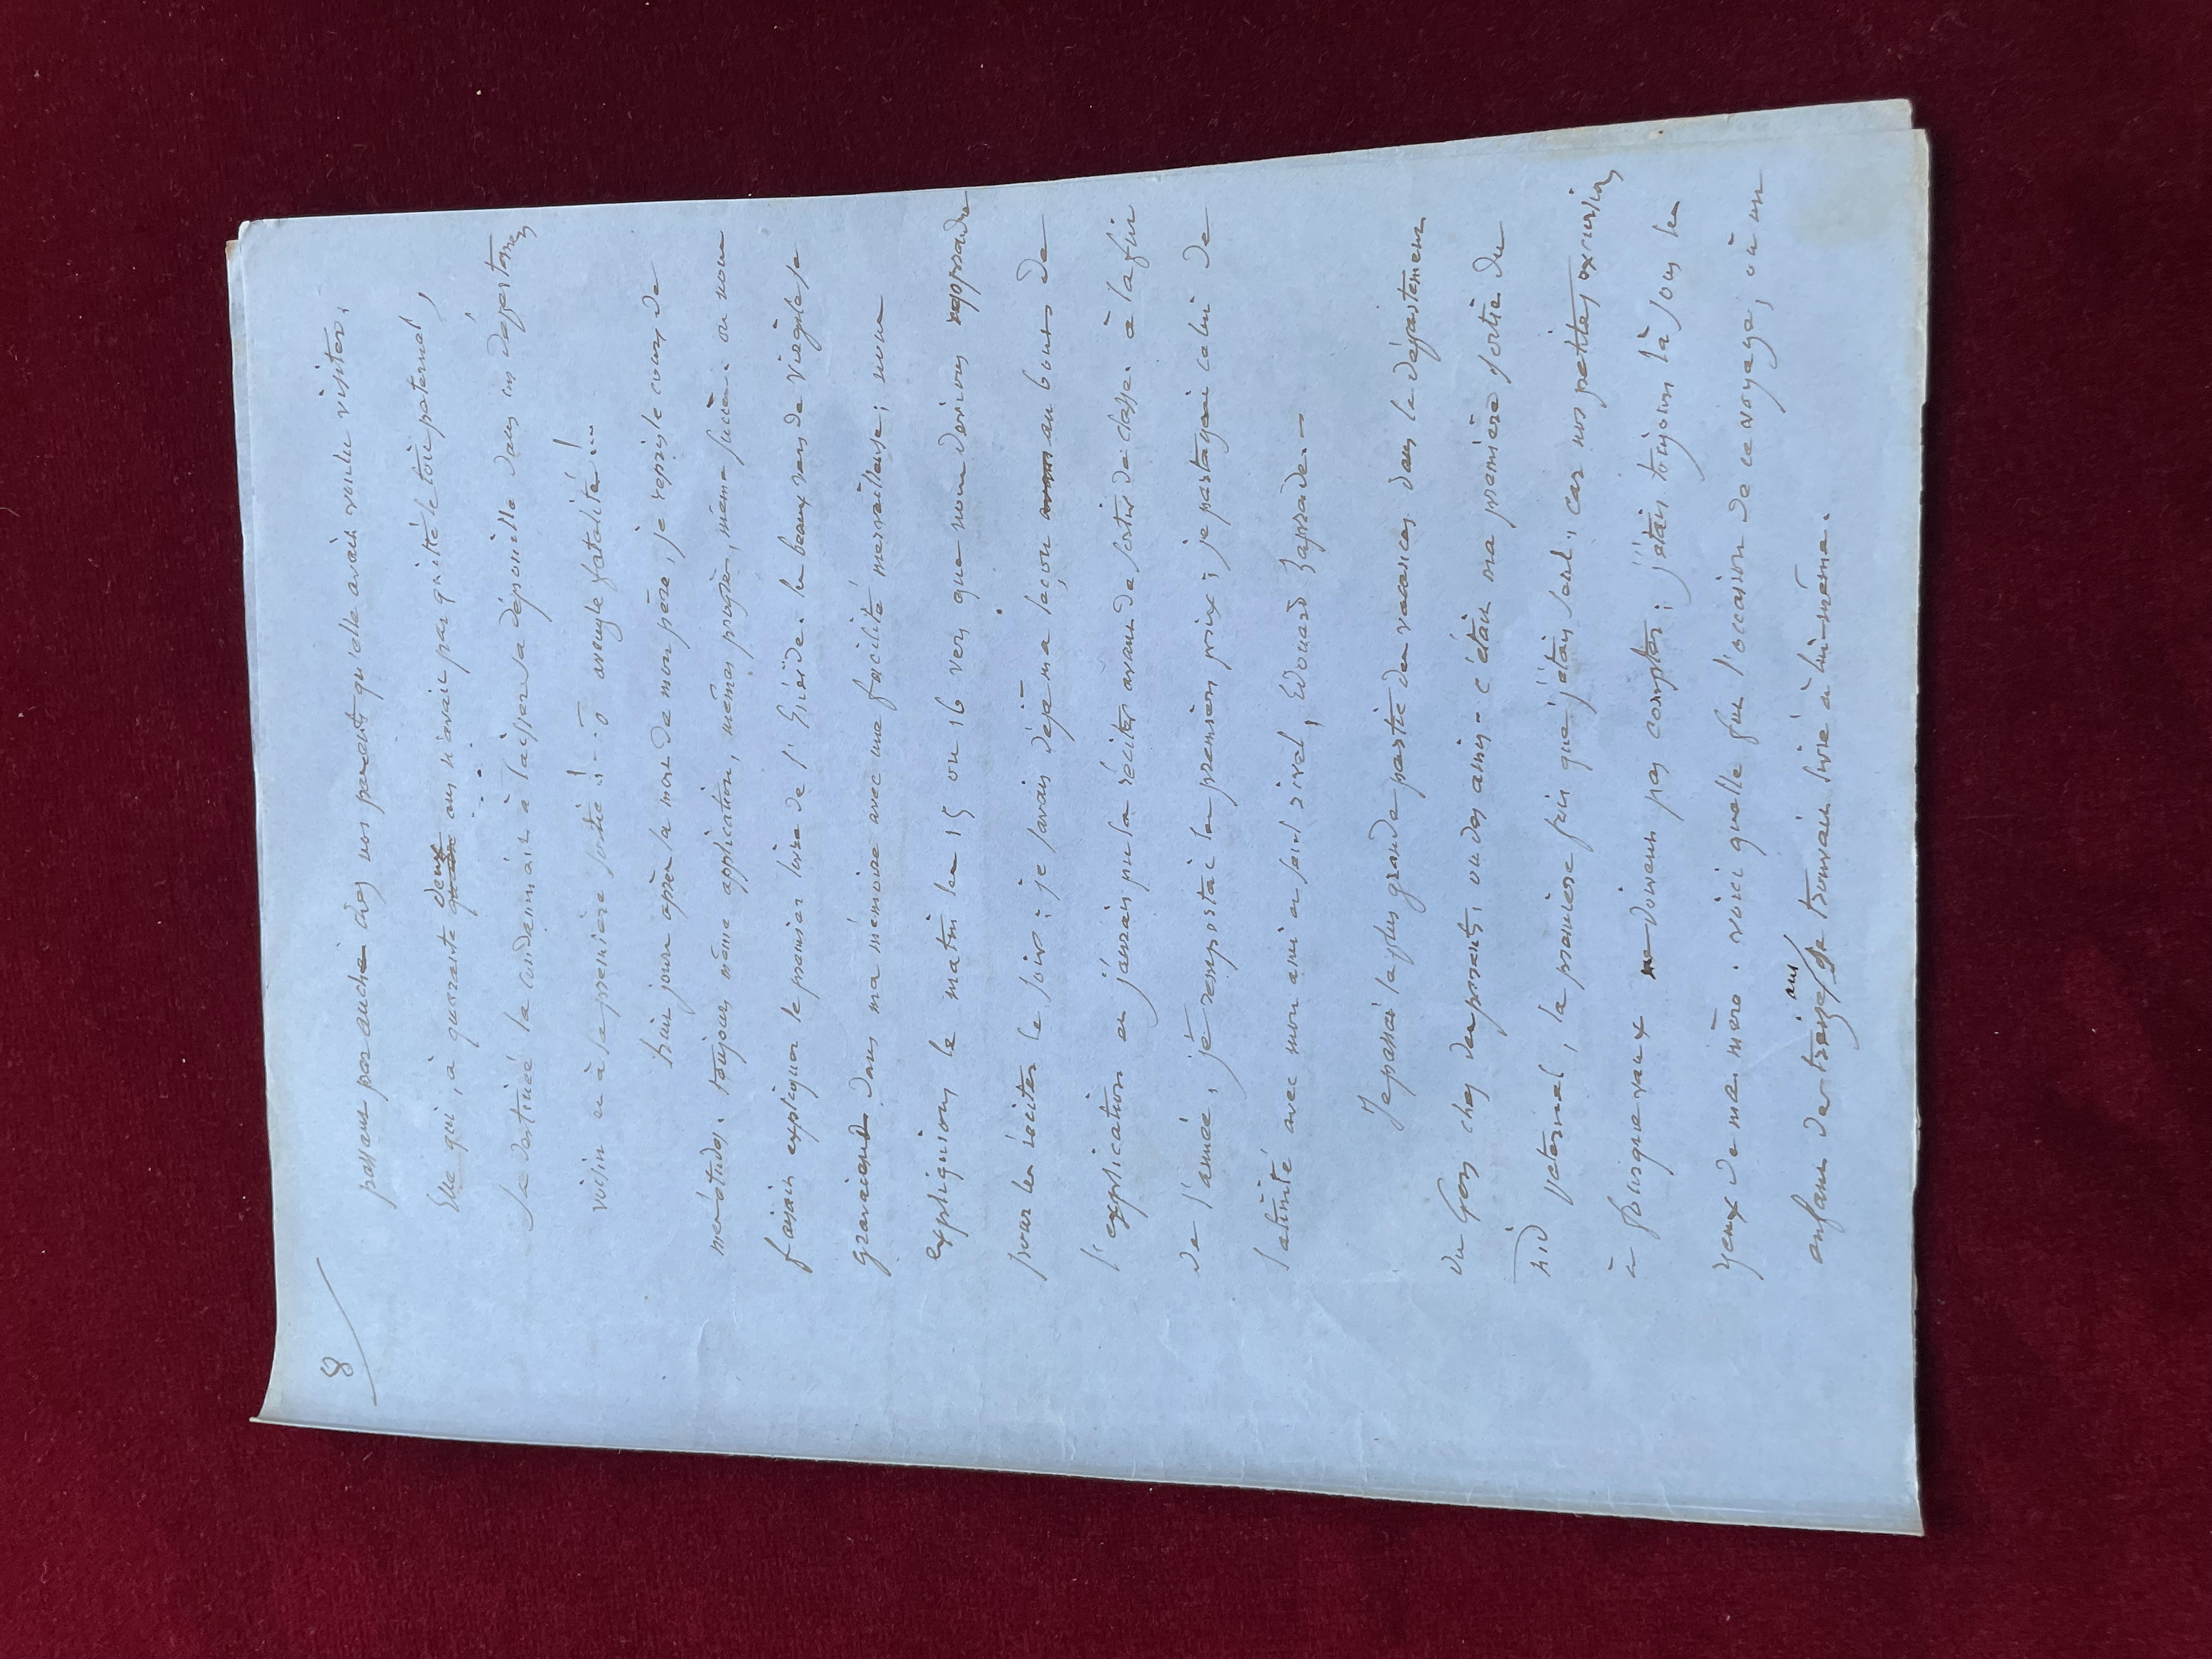 8
passant par auch chez nos parents qu'elle avait voulu visiter.
Elle qui, à quarante deux ans n'avait pas quitté le toit paternel,
sa destinée la condamnait à laisser sa dépouille dans un département
voisin et à sa première sortie !... ô aveugle fatalité !...
huit jours après la mort de mon père, je repris le cours de
mes études. toujours même application, mêmes progrès, même succès. on nous
faisait expliquer le premier livre de l'Enéide. les beaux vers de virgile se
gravaient dans ma mémoire avec une facilité merveilleuse ; nous
expliquions le matin les 15 ou 16 vers que nous devions apprendre
pour les réciter le soir : je savais déjà ma leçon au bout de
l'explication et j'aurais pu la réciter avant de sortir de classe. à la fin
de l'année, je remportai le premier prix ; je partageai celui de
latinité avec mon ami et seul rival, Edouard Laprade. -
Je passai la plus grande partie des vacances dans le département
du Gers chez des parents ou des amis - c'était ma première sortie du
nid paternel, la première fois que j'étais seul, car nos petites excursions
à puisgueraux ne doivent pas compter ; j'étais toujours là sous les
yeux de ma mère. voici quelle fut l'occasion de ce voyage, où un
enfant de treize ans se trouvait livré à lui-même.